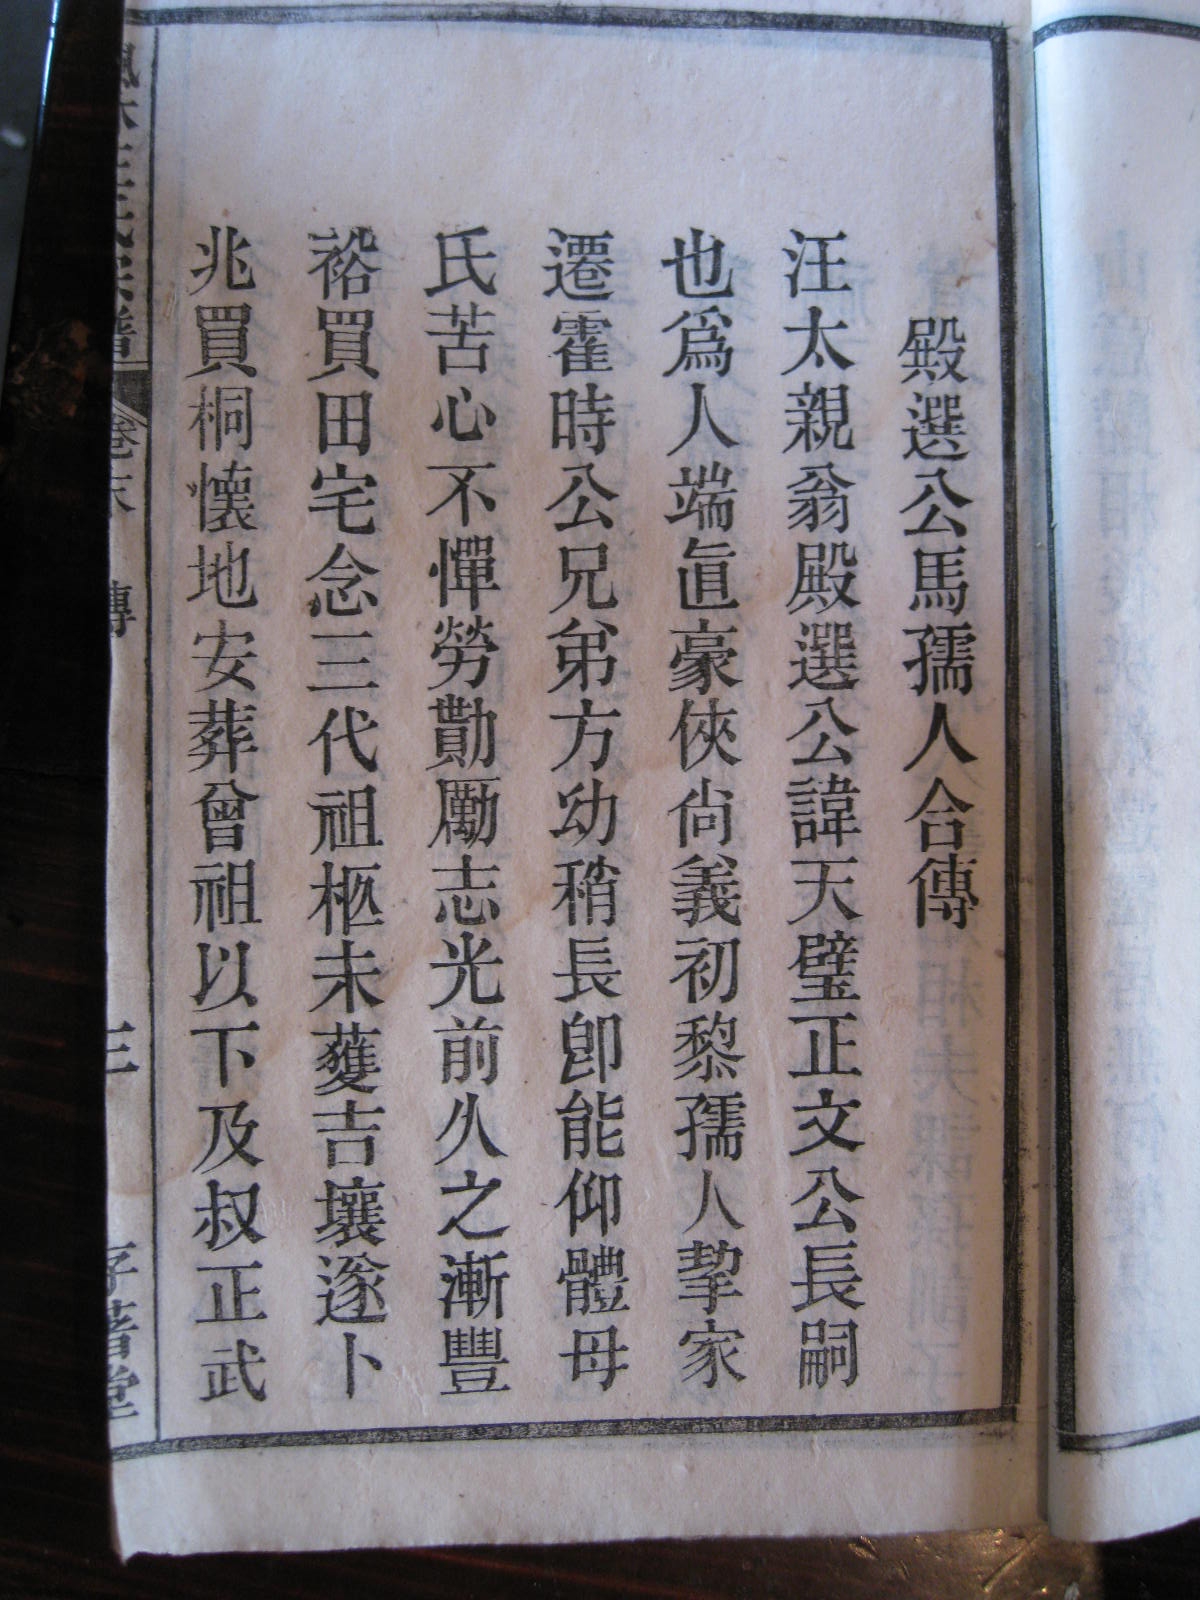 殿選公馬孺人合傳
汪太親翁殿選公諱天璧正文公長嗣
也爲人端眞豪俠尙義初黎孺人挈家
遷霍時公兄弟方幼稍長卽能仰體母
氏苦心不憚勞勩勵志光前久之漸豐
裕買田宅念三代祖柩未蔓吉壤遂卜
兆買桐懷地安葬曾祖以下及叔正武
卷末
傳
三